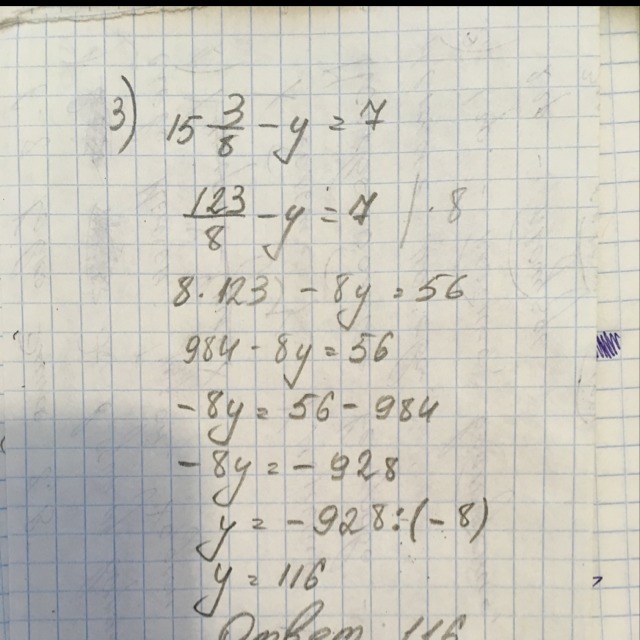 3) 15 3/8 - y = 7
123/8 - y = 7 / · 8
8 · 123 - 8y = 56
984 - 8y = 56
-8y = 56 - 984
-8y = -928
y = -928 : (-8)
y = 116
Ответ: 116